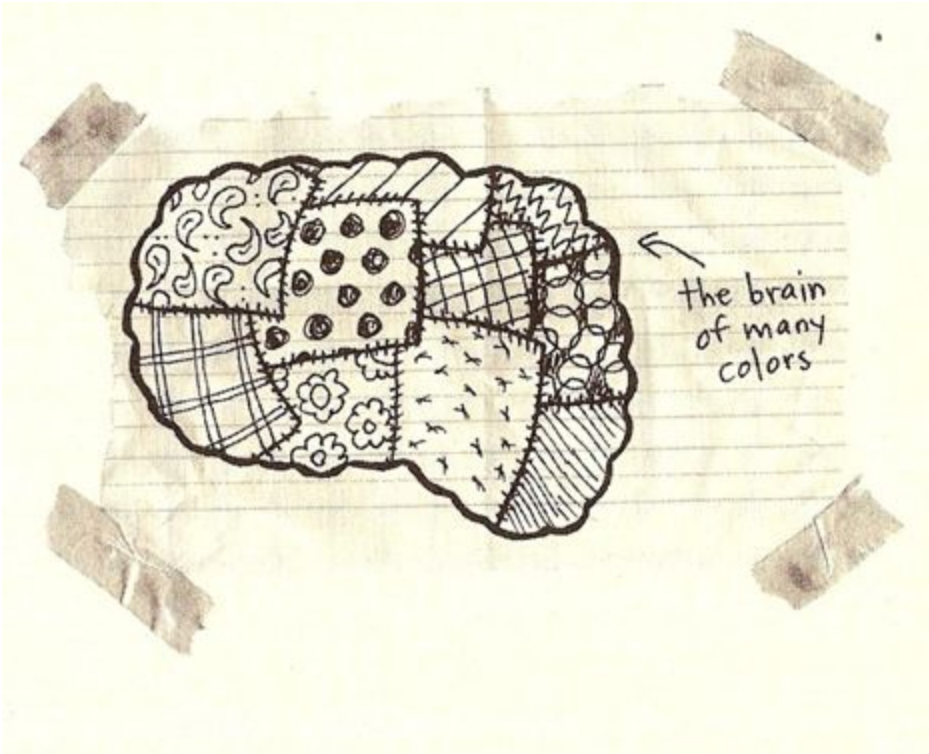 the brain
of many
colors